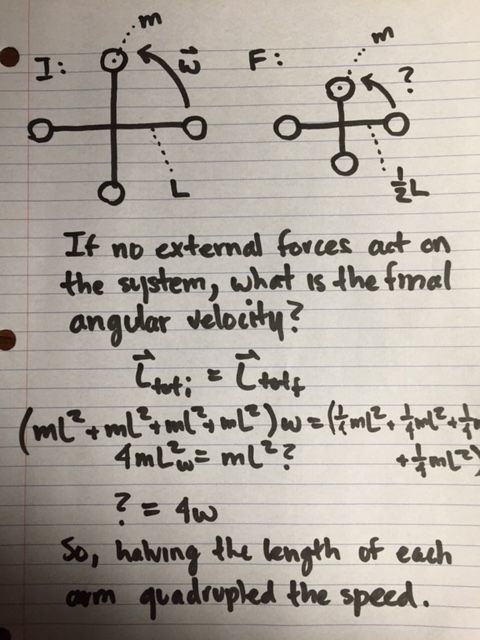 I:
m
ω⃗
L
F:
m
?
½L
If no external forces act on
the system, what is the final
angular velocity?
L⃗totᵢ = L⃗totf
(mL²+mL²+mL²+mL²)ω=(¼mL²+¼mL²+¼m
+¼mL²)
4mL²ω = mL²?
? = 4ω
So, halving the length of each
arm quadrupled the speed.